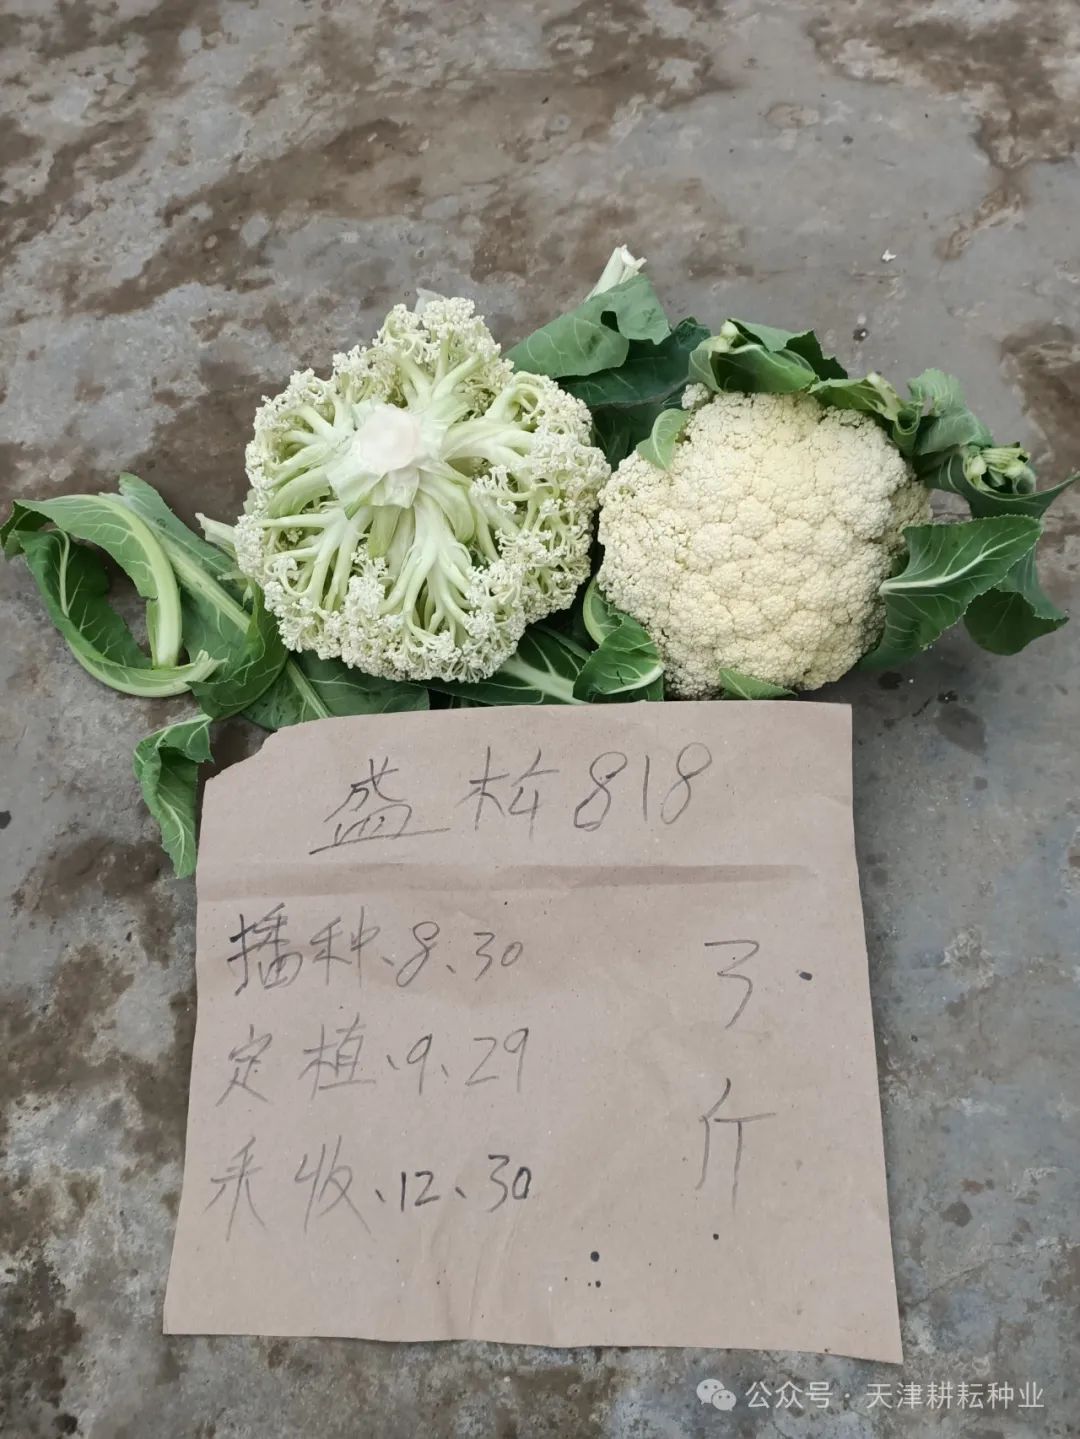 盛松818
播种、8、30
定植、9、29
采收、12、30
3.
斤
公众号·天津耕耘种业